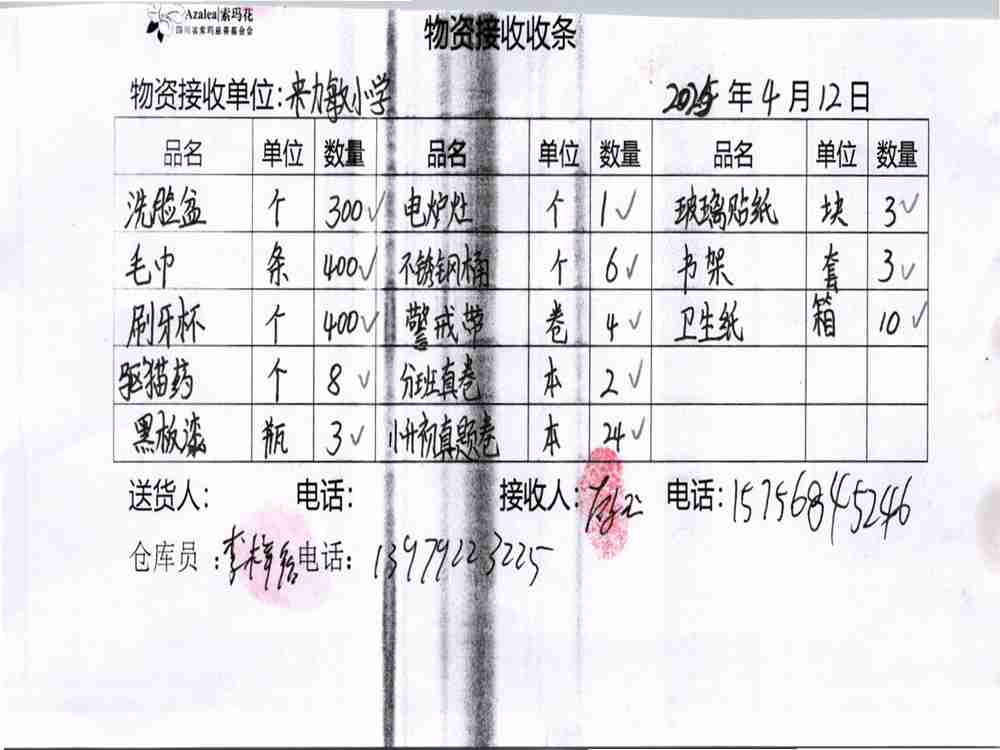 Azalea|索玛花
四川省索玛慈善基金会
物资接收收条
物资接收单位:来力敏小学 2025年4月12日
品名 单位 数量 品名 单位 数量 品名 单位 数量
洗脸盆 个 300✓ 电炉灶 个 1✓ 玻璃贴纸 块 3✓
毛巾 条 400✓ 不锈钢桶 个 6✓ 书架 套 3✓
刷牙杯 个 400✓ 警戒带 卷 4✓ 卫生纸 箱 10✓
驱猫药 个 8✓ 分班真卷 本 2✓
黑板漆 瓶 3✓ 小升初真题卷 本 24✓
送货人: 电话: 接收人: 电话:15756845246
仓库员:李 电话:13979223225